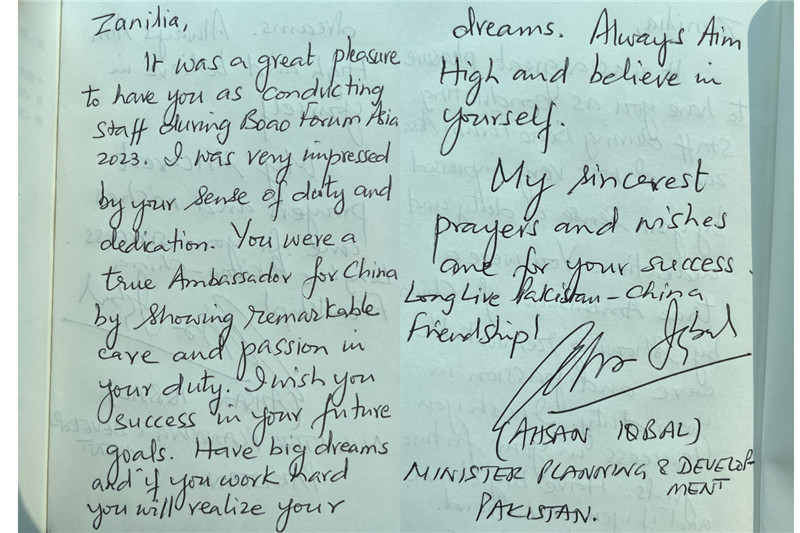 Zanilia,
It was a great pleasure
to have you as conducting
staff during Boao Forum Asia
2023. I was very impressed
by your sense of duty and
dedication. You were a
true Ambassador for China
by showing remarkable
care and passion in
your duty. I wish you
success in your future
goals. Have big dreams
and if you work hard
you will realize your
dreams. Always Aim
High and believe in
yourself.
My sincerest
prayers and wishes
are for your success.
Long Live Pakistan-China
Friendship!
Ahsan Iqbal
(AHSAN IQBAL)
MINISTER PLANNING & DEVELOP-
MENT
PAKISTAN.